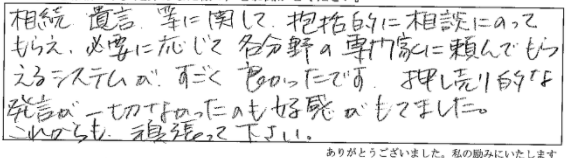 相続 遺言 等に関して、抱括的に相談にのって
もらえ、必要に応じて 各分野の専門家に頼んでもら
えるシステムが、すごく 良かったです。 押し売り的な
発言が一切なかったのも好感がもてました。
これからも、頑張って下さい。
ありがとうございました。私の励みにいたします